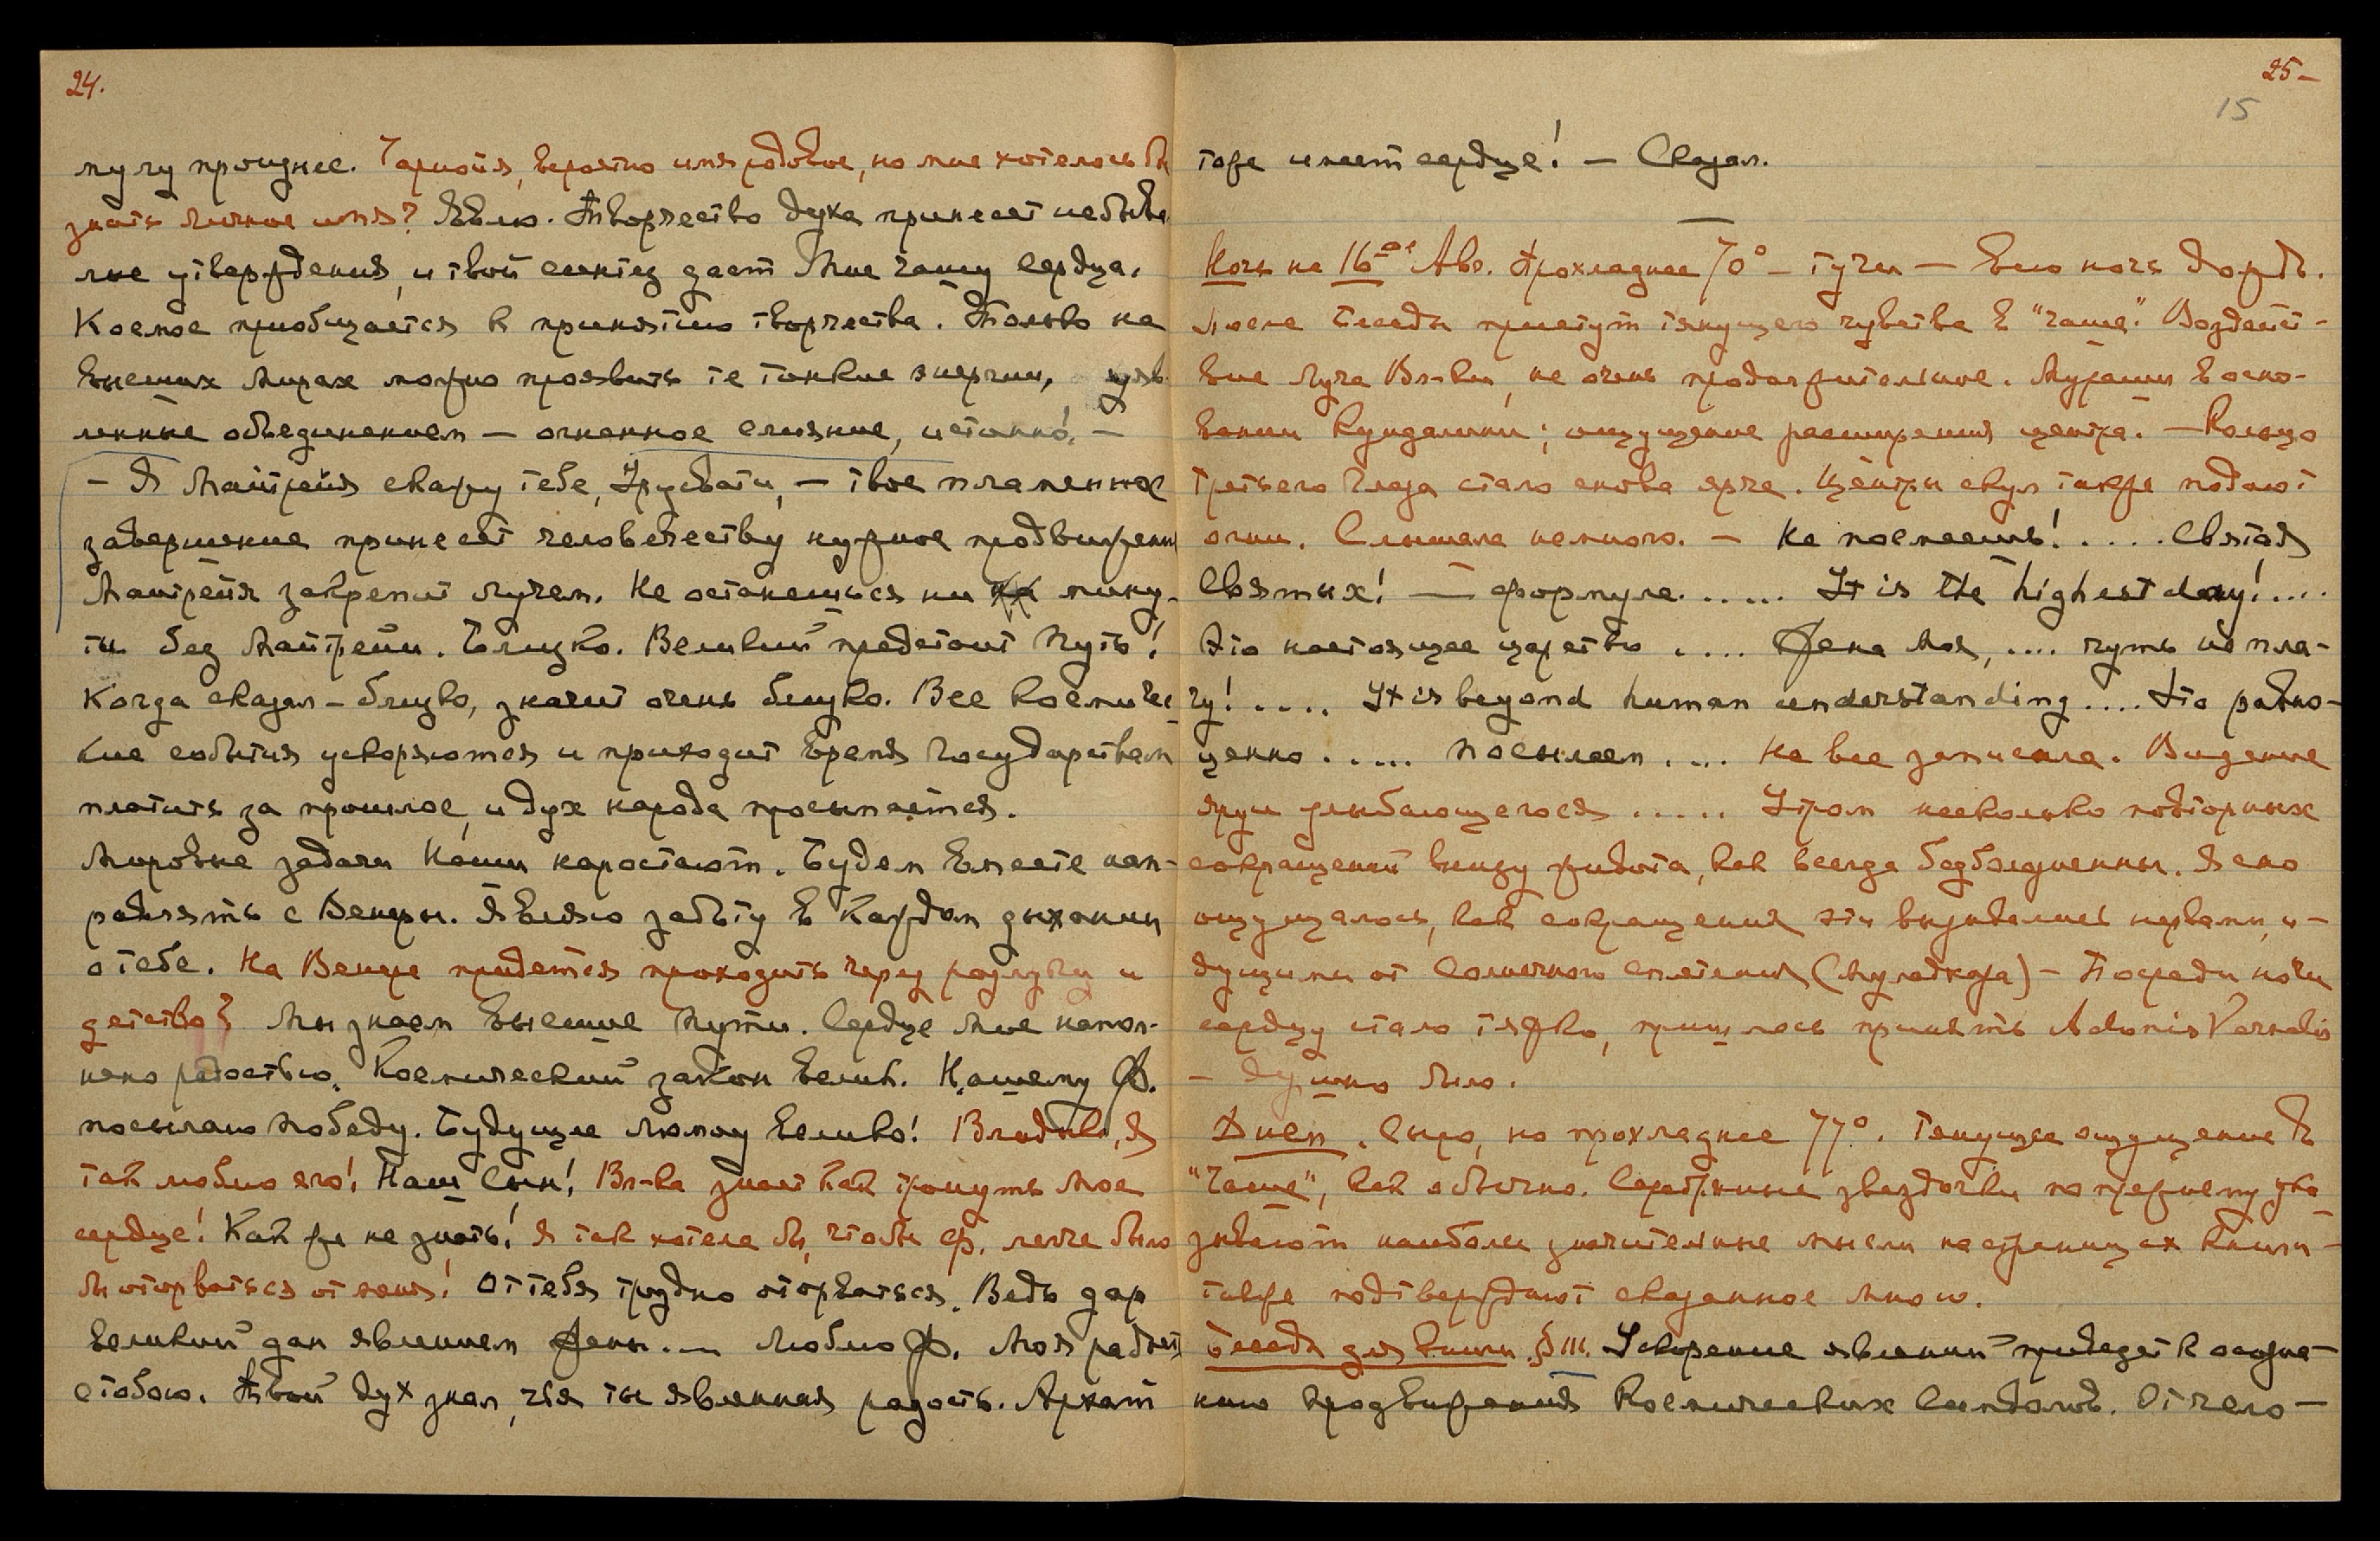 24.
лучу прозднее. Чарнойя, вероятно имя родовое, но мне хотелось бы
знать личное имя? Явлю. Творчество духа принесет небыва
лые утверждения, и твой синтез дает Мне чашу Сердца.
Космос приобщается к принятию творчества. Только на
высших Мирах можно проявить те тонкие энергии, явл
ленные объединением — огненное слияние, истинно! —
— Я Майтрейя скажу тебе, Урусвати, — твое пламенное
завершение принесет человечеству нужное продвижение
Майтрейя закрепит лучем. Не останешься ни мину-
ты без Майтрейи. Близко. Великий предстоит Путь!
Когда сказал — близко, значит очень близко. Все космичес
кие события ускоряются и приходит время Государствам
платить за прошлое, и дух народа просыпается.
Мировые задачи Наши наростают. Будем вместе нап-
равлять с Венеры. Являю заботу в каждом дыхании
о тебе. На Венере придется проходить через разлуку и
детство? Мы знаем высшие Пути. Сердце Мое напол-
нено радостью. Космический закон велик. Нашему Ф.
посылаю победу. Будущее Люмоу велико! Владыко, я
так люблю его! Наш Сын! Вл-ка знает как тронуть мое
сердце! Как же не знать! Я так хотела бы, чтобы Ф. легче было
бы оторваться от меня! От тебя трудно оторваться. Ведь дар
великий дан явлением Жены. — Люблю Ф. Моя радость
с тобою. Твой дух знал, чья ты явленная радость. Архат
25 —
15
тоже имеет сердце! — Сказал.
Ночь на 16ое Авг. Прохладнее 70° — тучи — Всю ночь дождь.
После Беседы присутств тянущего чувства в "чаше". Воздейст-
вие Луча Вл-ки, не очень продолжительное. Мурашки в осно-
вании Кундалини; ощущение расширения центра. — Кольцо
третьего Глаза стало снова ярче. Центры скул также подают
огни. Слышала немного. — Не посмеешь! . . . . Святая
Святых! — формула . . . . . It is the highest day! . . . .
Это настоящее царство . . . . Жена Моя, . . . . чуть не пла-
чу! . . . . It is beyond human understanding . . . . Это равно-
ценно . . . . . посылаем . . . . Не все записала. Видение
улыбающегося . . . . . Утром несколько повторных
сокращений внизу живота, как всегда безболезненны. Ясно
ощущалось, как сокращения эти вызывались нервами, и-
дущими от Солнечного сплетения (Муладхара) — Посреди ночи
сердцу стало тяжко, пришлось принять Adonis Vernalis
— Душно было.
Днем. Сыро, но прохладнее 77°. Тянущее ощущение в
"Чаше", как обычно. Серебряные звездочки по прежнему ука
зывают наиболее значительные мысли на страницах книги —
также подтверждают сказанное мною.
Беседа для книги. § III. Ускорение явлений приведет к осозна-
нию продвижения Космических Символов. От чело —